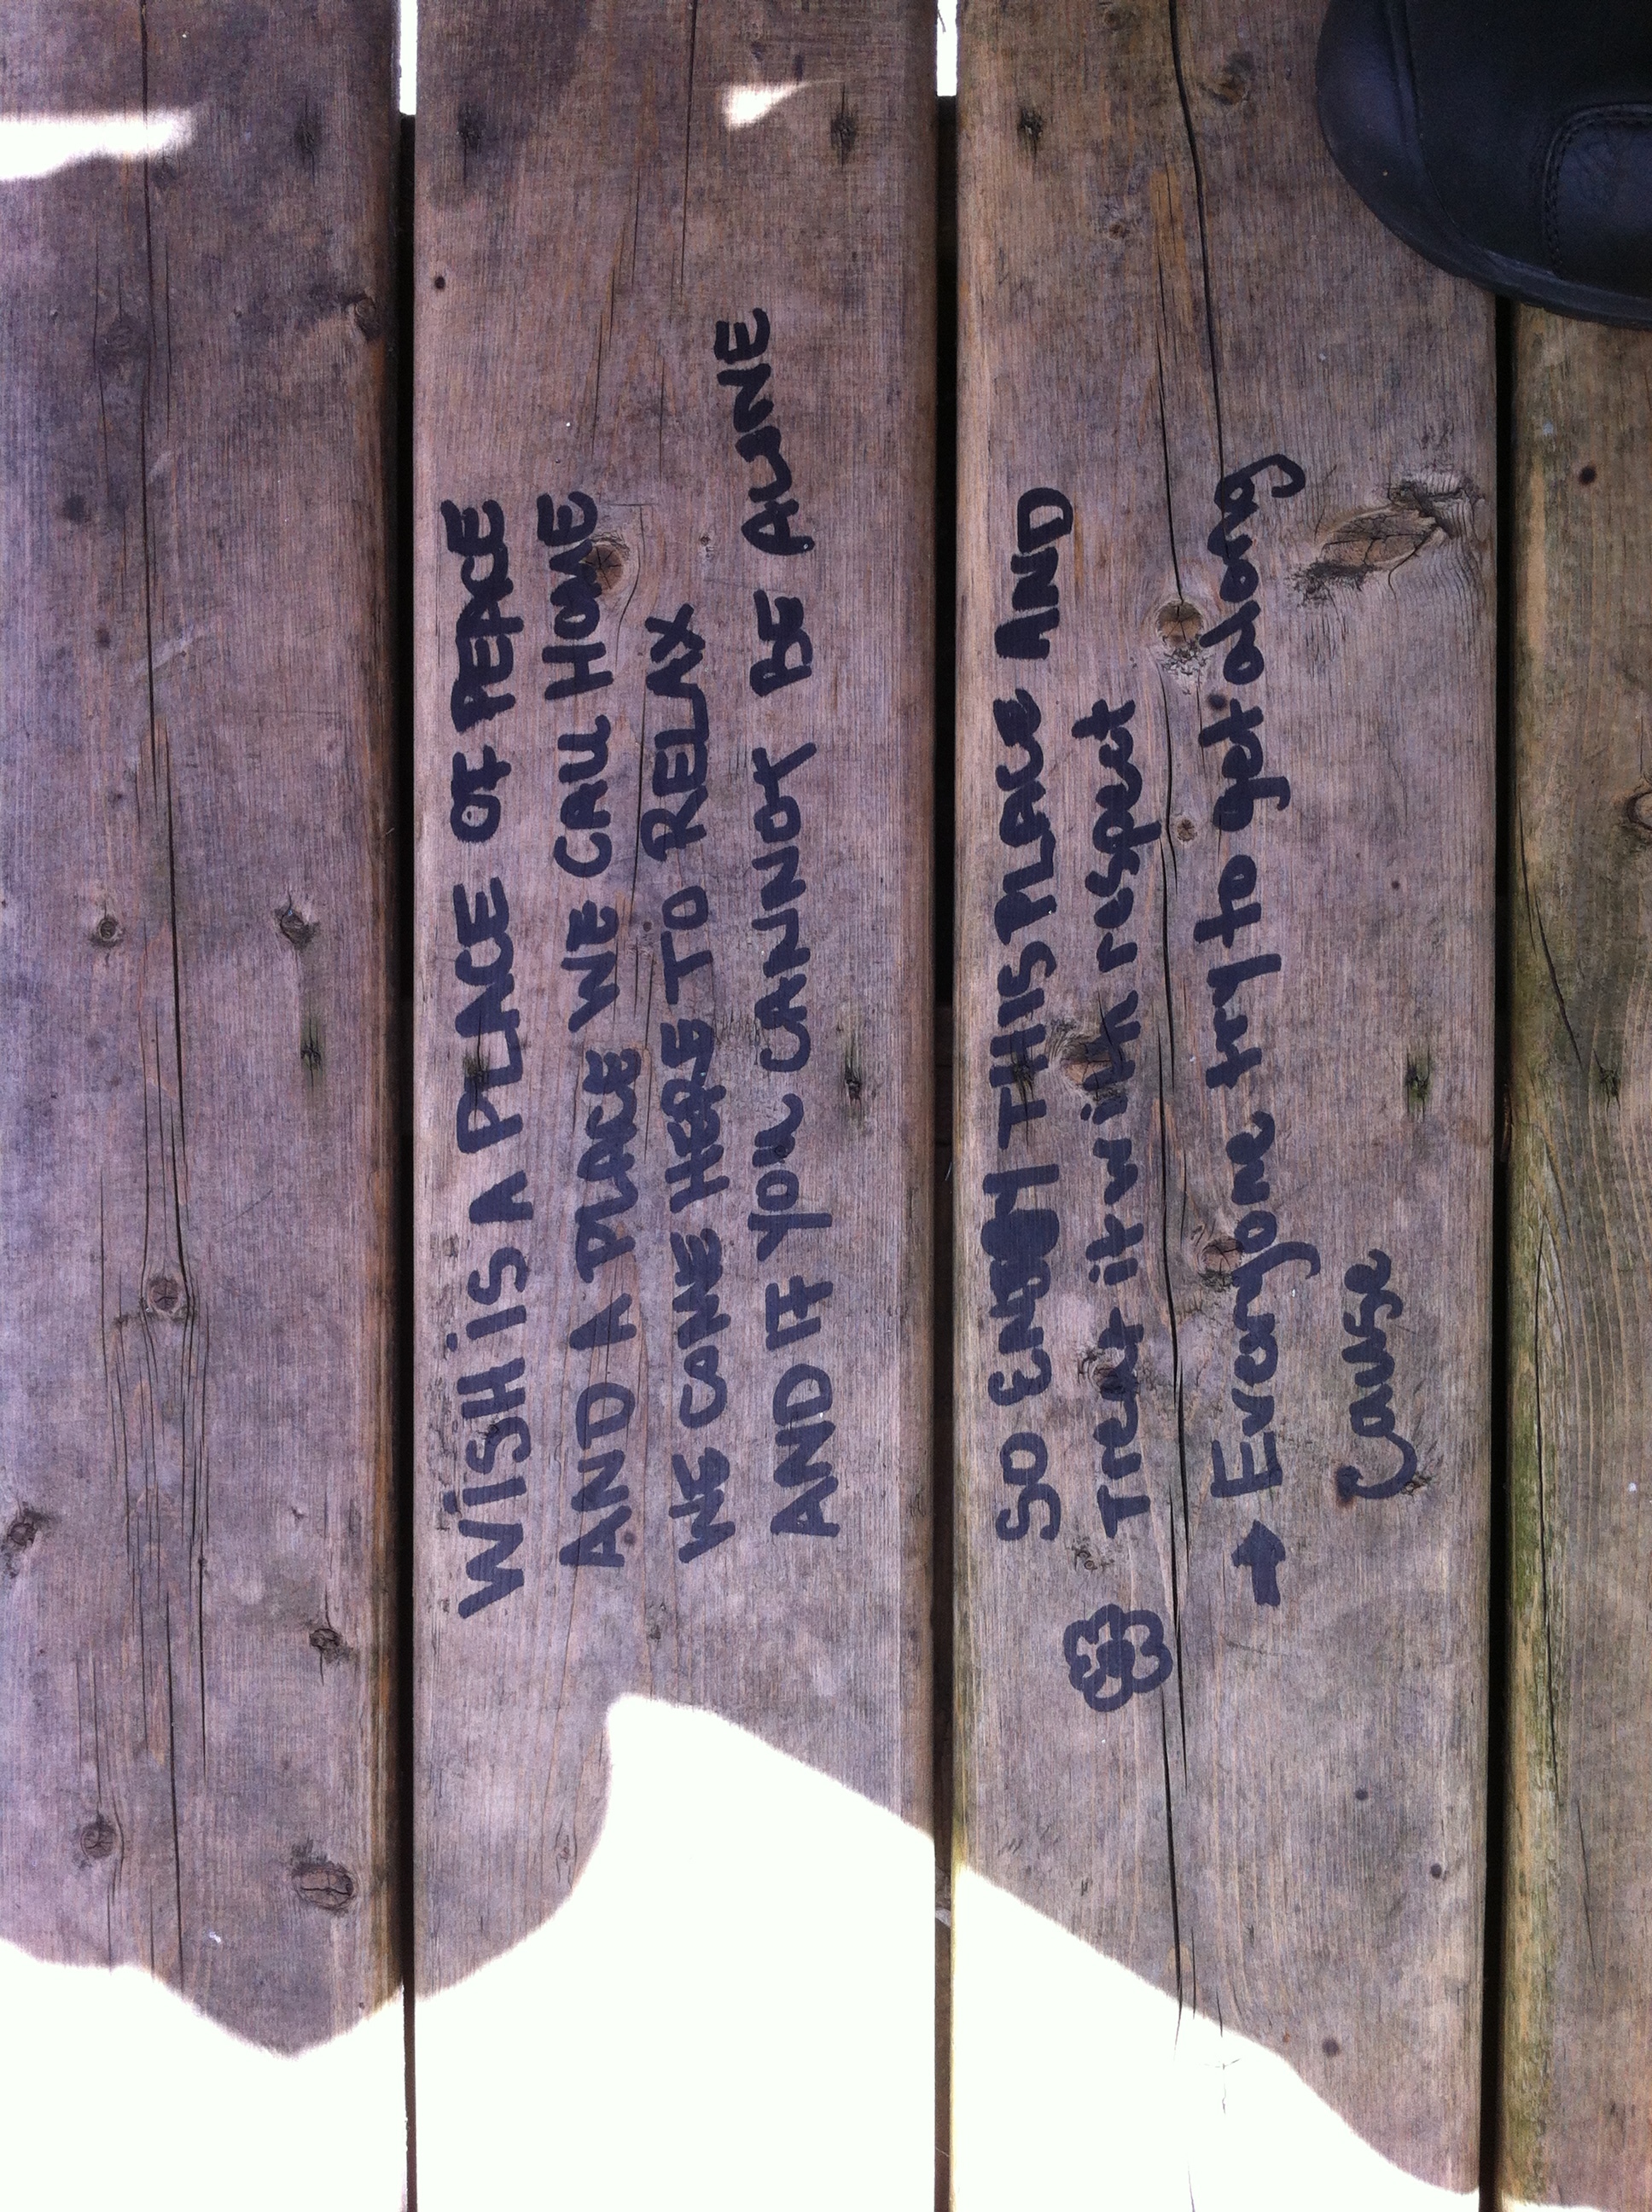 WISH IS A PLACE OF PEACE
AND A PLACE WE CALL HOME
WE COME HERE TO RELAX
AND IF YOU CANNOT BE ALONE
SO ENJOY THIS PLACE AND
Treat it with respect
→ Everyone try to get along
Cause